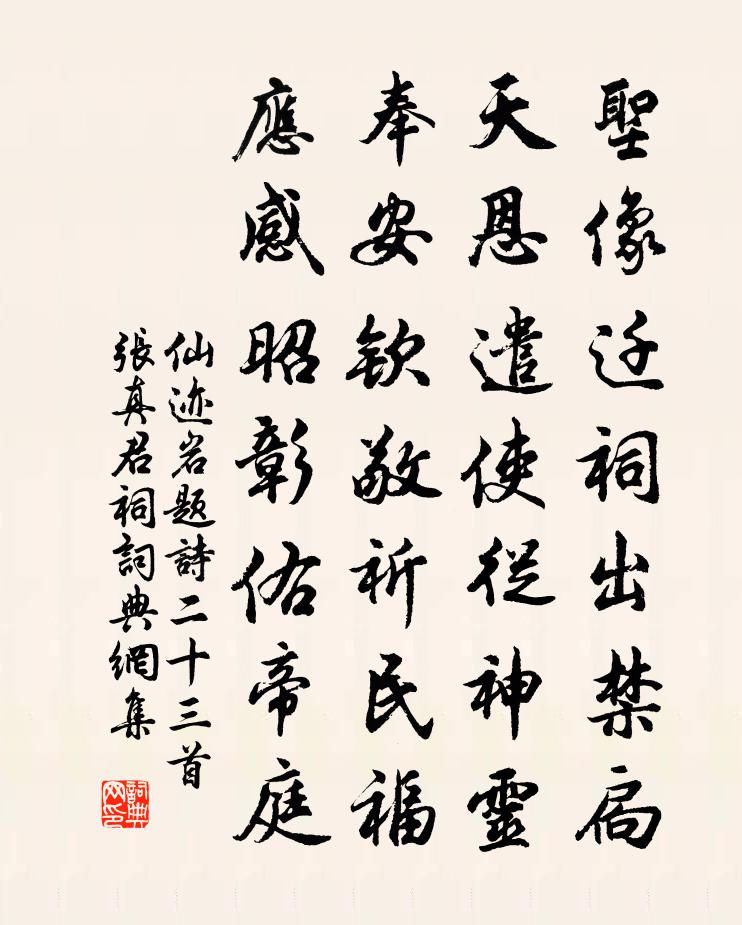 聖像迁祠出禁扃
天恩遣使從神靈
奉安欽敬祈民福
應感昭彰佑帝庭
仙迹岩題詩二十三首
張真君祠詞典網集
詞典
网印